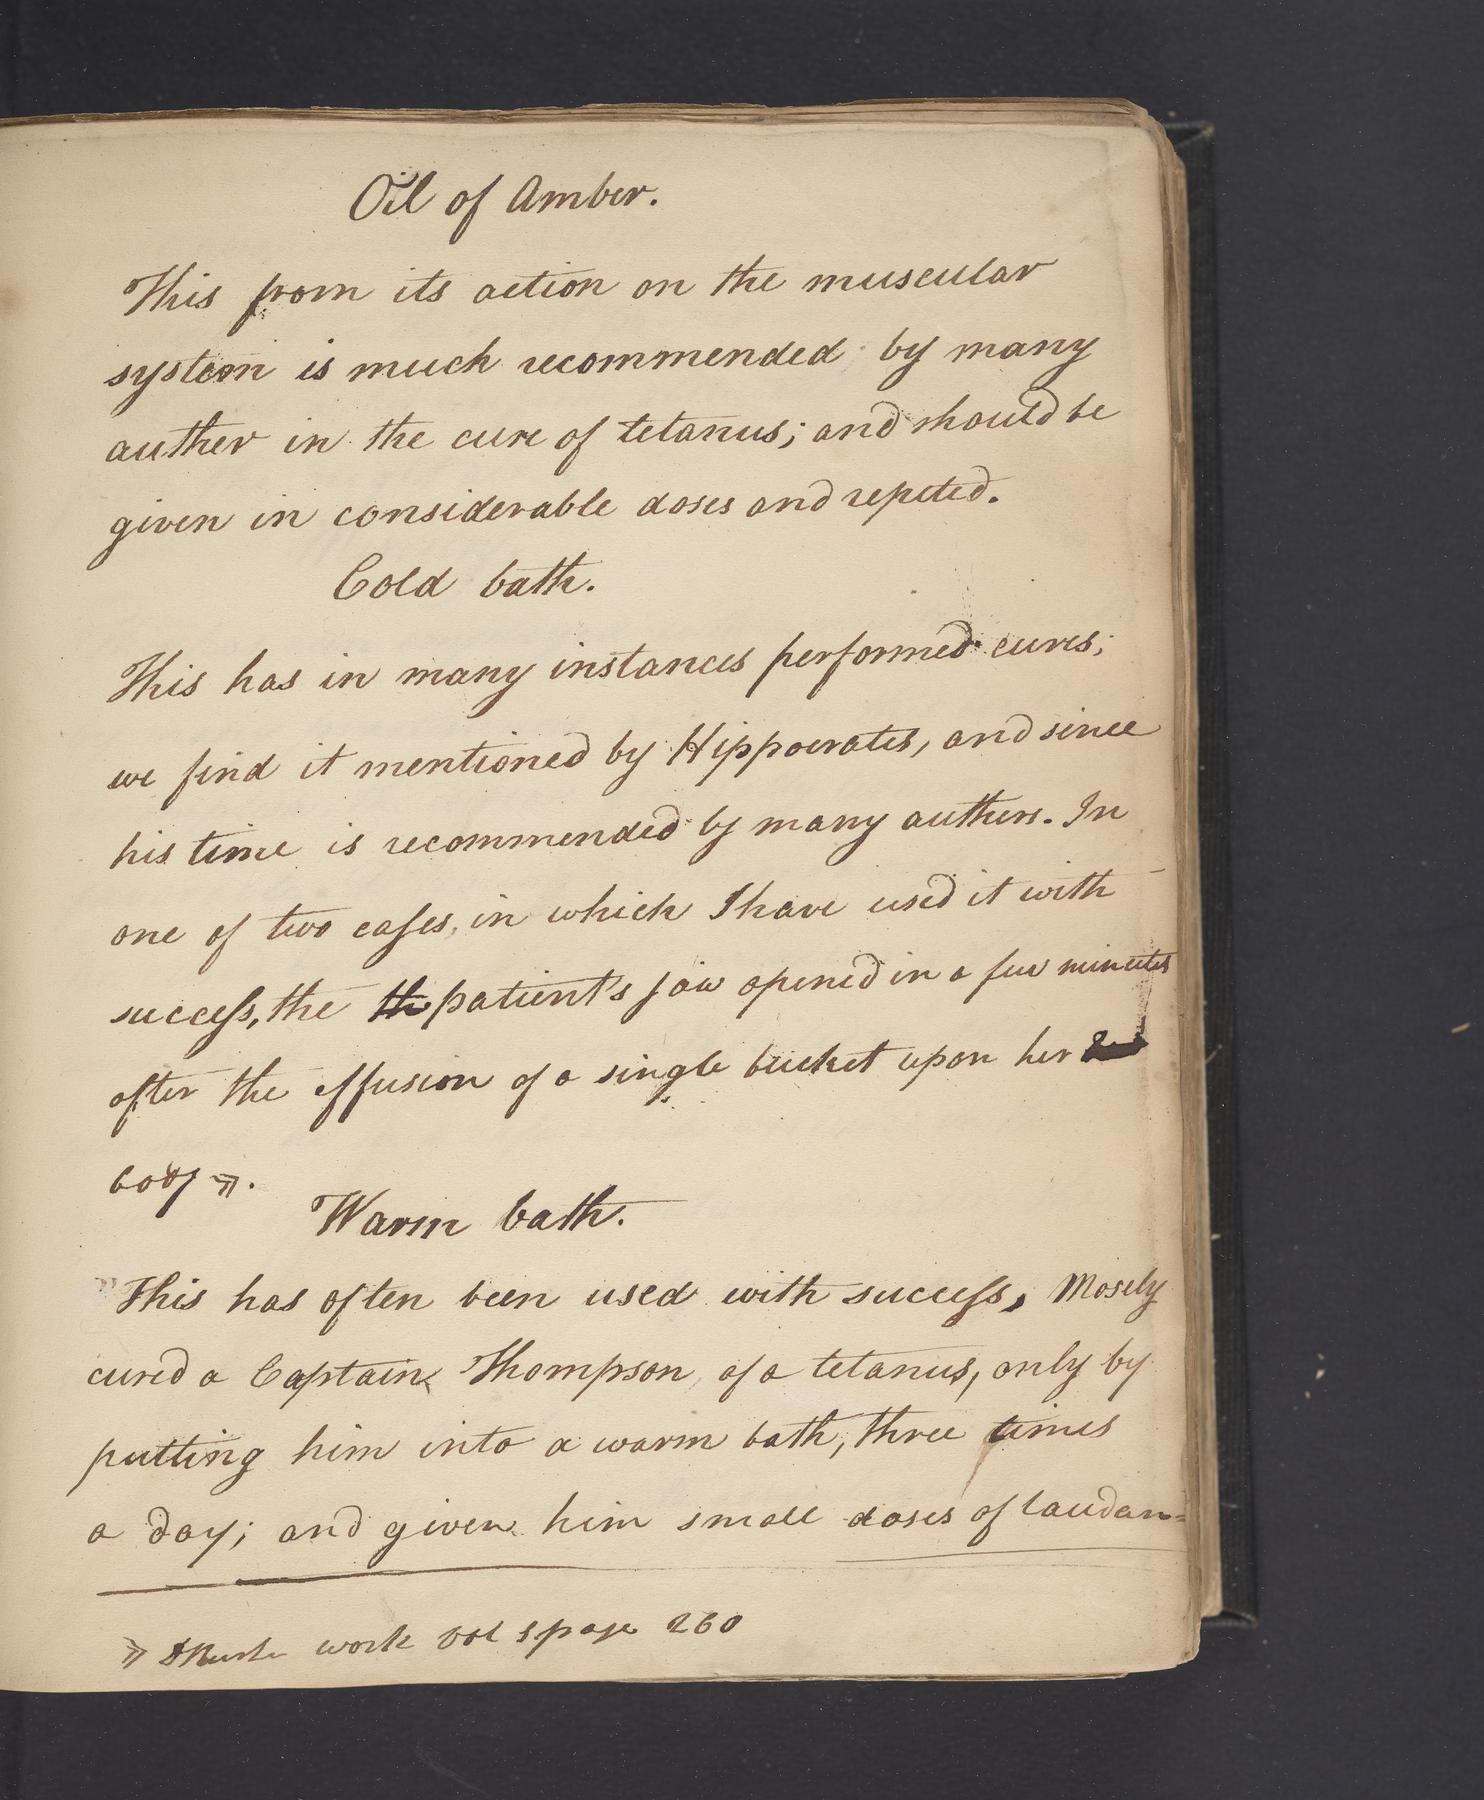 Oil of Amber.
This from its action on the muscular
system is much recommended by many
auther in the cure of tetanus; and should be
given in considerable doses and repeted.
Cold bath.
This has in many instances performed cures;
we find it mentioned by Hippocrates, and since
his time is recommended by many authers. In
one of two caſes, in which I have used it with
succeſs, the th patient's jaw opened in a few minutes
after the effusion of a single bucket upon her
body ».
Warm bath.
This has often been used with succeſs, Mosely
cured a Captain Thompson of a tetanus, only by
putting him into a warm bath, three times
a day; and given him small doses of laudan=
» work vol page 260